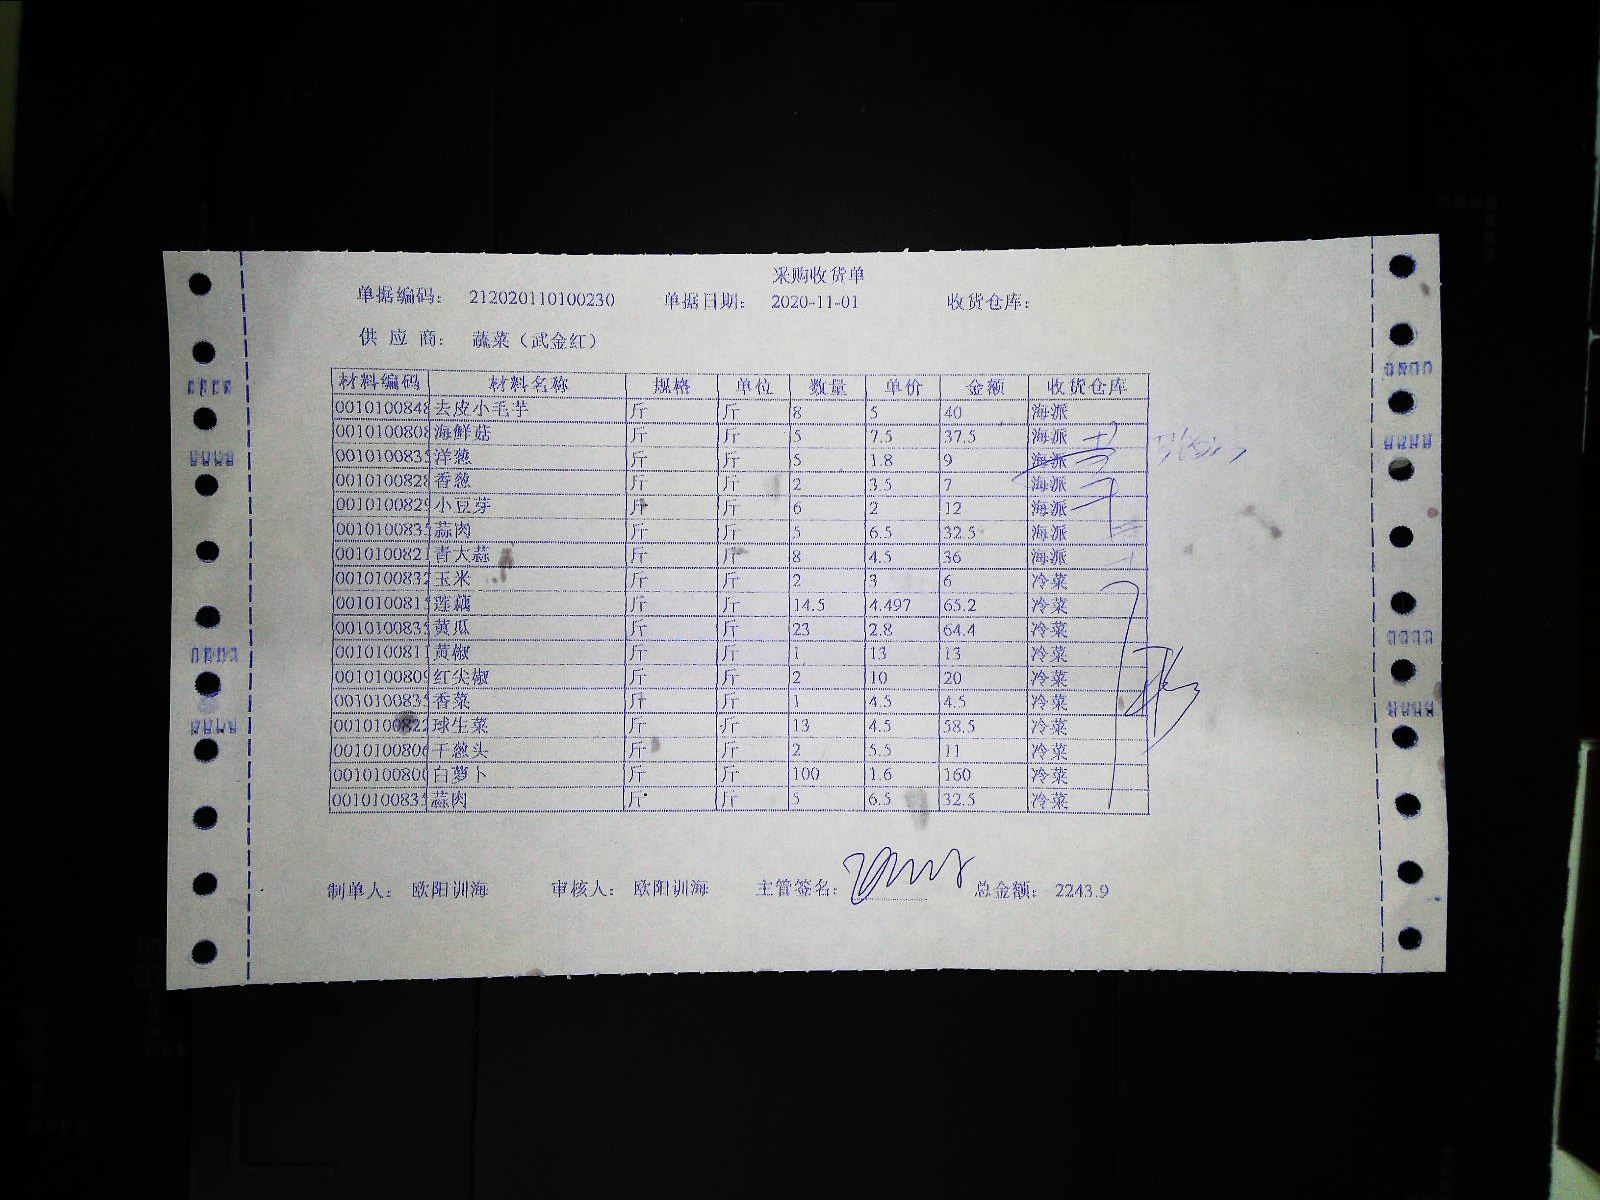 采购收货单
单据编码： 212020110100230 单据日期： 2020-11-01 收货仓库：
供 应 商： 蔬菜（武金红）
材料编码 材料名称 规格 单位 数量 单价 金额 收货仓库
0010100848 去皮小毛芋 斤 斤 8 5 40 海派
0010100808 海鲜菇 斤 斤 5 7.5 37.5 海派
001010083 洋葱 斤 斤 5 1.8 9 海派
0010100828 香葱 斤 斤 2 3.5 7 海派
0010100829 小豆芽 斤 斤 6 2 12 海派
001010083 蒜肉 斤 斤 5 6.5 32.5 海派
0010100821 青大蒜 斤 斤 8 4.5 36 海派
0010100832 玉米 斤 斤 2 3 6 冷菜
001010081 莲藕 斤 斤 14.5 4.497 65.2 冷菜
001010083 黄瓜 斤 斤 23 2.8 64.4 冷菜
0010100811 黄椒 斤 斤 1 13 13 冷菜
0010100809 红尖椒 斤 斤 2 10 20 冷菜
001010083 香菜 斤 斤 1 4.5 4.5 冷菜
0010100822 球生菜 斤 斤 13 4.5 58.5 冷菜
0010100806 干葱头 斤 斤 2 5.5 11 冷菜
0010100800 白萝卜 斤 斤 100 1.6 160 冷菜
001010083 蒜肉 斤 斤 5 6.5 32.5 冷菜
制单人： 欧阳训海 审核人： 欧阳训海 主管签名： 总金额： 2243.9